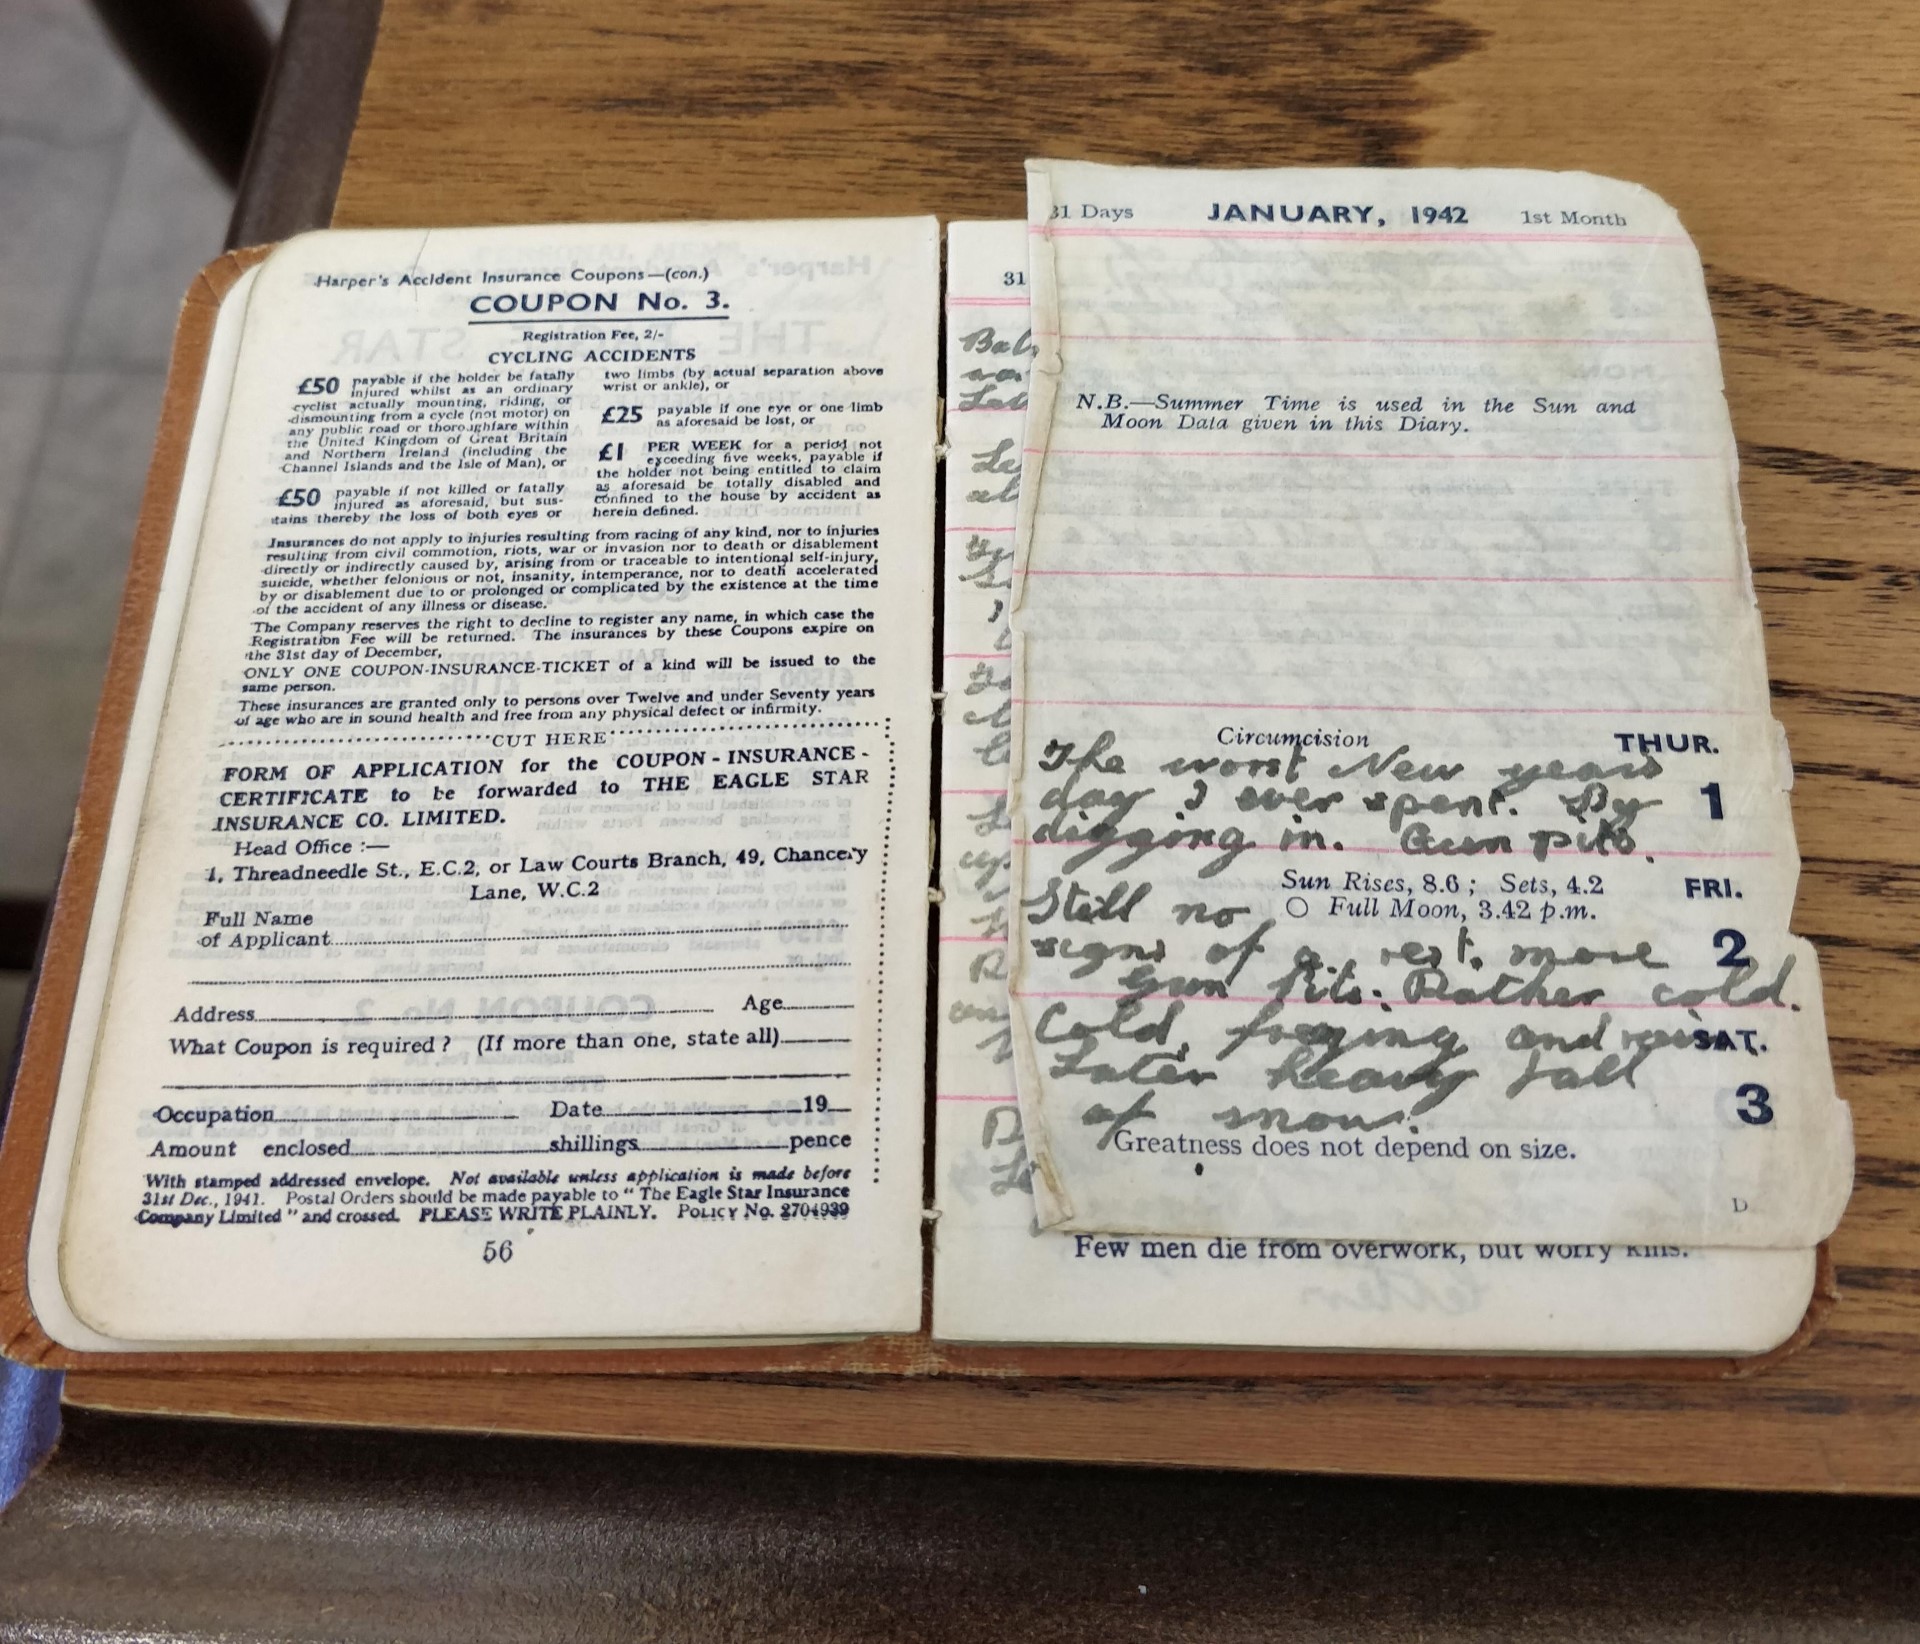 Harper's Accident Insurance Coupons—(con.)
COUPON No. 3.
Registration Fee, 2/-
CYCLING ACCIDENTS
£50 payable if the holder be fatally
injured whilst as an ordinary
cyclist actually mounting, riding, or
dismounting from a cycle (not motor) on
any public road or thoroughfare within
the United Kingdom of Great Britain
and Northern Ireland (including the
Channel Islands and the Isle of Man), or
£50 payable if not killed or fatally
injured as aforesaid, but sus-
tains thereby the loss of both eyes or
two limbs (by actual separation above
wrist or ankle), or
£25 payable if one eye or one limb
as aforesaid be lost, or
£1 PER WEEK for a period not
exceeding five weeks, payable if
the holder not being entitled to claim
as aforesaid be totally disabled and
confined to the house by accident as
herein defined.
Insurances do not apply to injuries resulting from racing of any kind, nor to injuries
resulting from civil commotion, riots, war or invasion nor to death or disablement
directly or indirectly caused by, arising from or traceable to intentional self-injury,
suicide, whether felonious or not, insanity, intemperance, nor to death accelerated
by or disablement due to or prolonged or complicated by the existence at the time
of the accident of any illness or disease.
The Company reserves the right to decline to register any name, in which case the
Registration Fee will be returned. The insurances by these Coupons expire on
the 31st day of December,
ONLY ONE COUPON-INSURANCE-TICKET of a kind will be issued to the
same person.
These insurances are granted only to persons over Twelve and under Seventy years
of age who are in sound health and free from any physical defect or infirmity.
CUT HERE
FORM OF APPLICATION for the COUPON-INSURANCE-
CERTIFICATE to be forwarded to THE EAGLE STAR
INSURANCE CO. LIMITED.
Head Office :—
1, Threadneedle St., E.C.2, or Law Courts Branch, 49, Chancery
Lane, W.C.2
Full Name
of Applicant
Address Age
What Coupon is required ? (If more than one, state all)
Occupation Date 19
Amount enclosed shillings pence
With stamped addressed envelope. Not available unless application is made before
31st Dec., 1941. Postal Orders should be made payable to "The Eagle Star Insurance
Company Limited" and crossed. PLEASE WRITE PLAINLY. POLICY No. 2704939
56
31
31 Days JANUARY, 1942 1st Month
N.B.—Summer Time is used in the Sun and
Moon Data given in this Diary.
Circumcision THUR.
The worst New years
day I ever spent. By 1
digging in. Gun pits.
Sun Rises, 8.6 ; Sets, 4.2 FRI.
Still no ○ Full Moon, 3.42 p.m.
signs of a rest, more 2
gun Pits. Rather cold.
Cold, and rain SAT.
Later heavy fall
of snow. 3
Greatness does not depend on size.
D
Few men die from overwork, but worry kills.